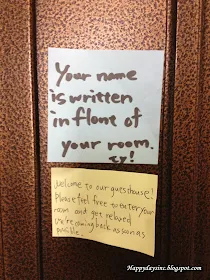 Your name
is written
in flont of
your room.
Welcome to our guesthouse!
Please feel free to enter your
room and get relaxed
We're coming back as soon as
possible.
Happydaysinx.blogspot.com